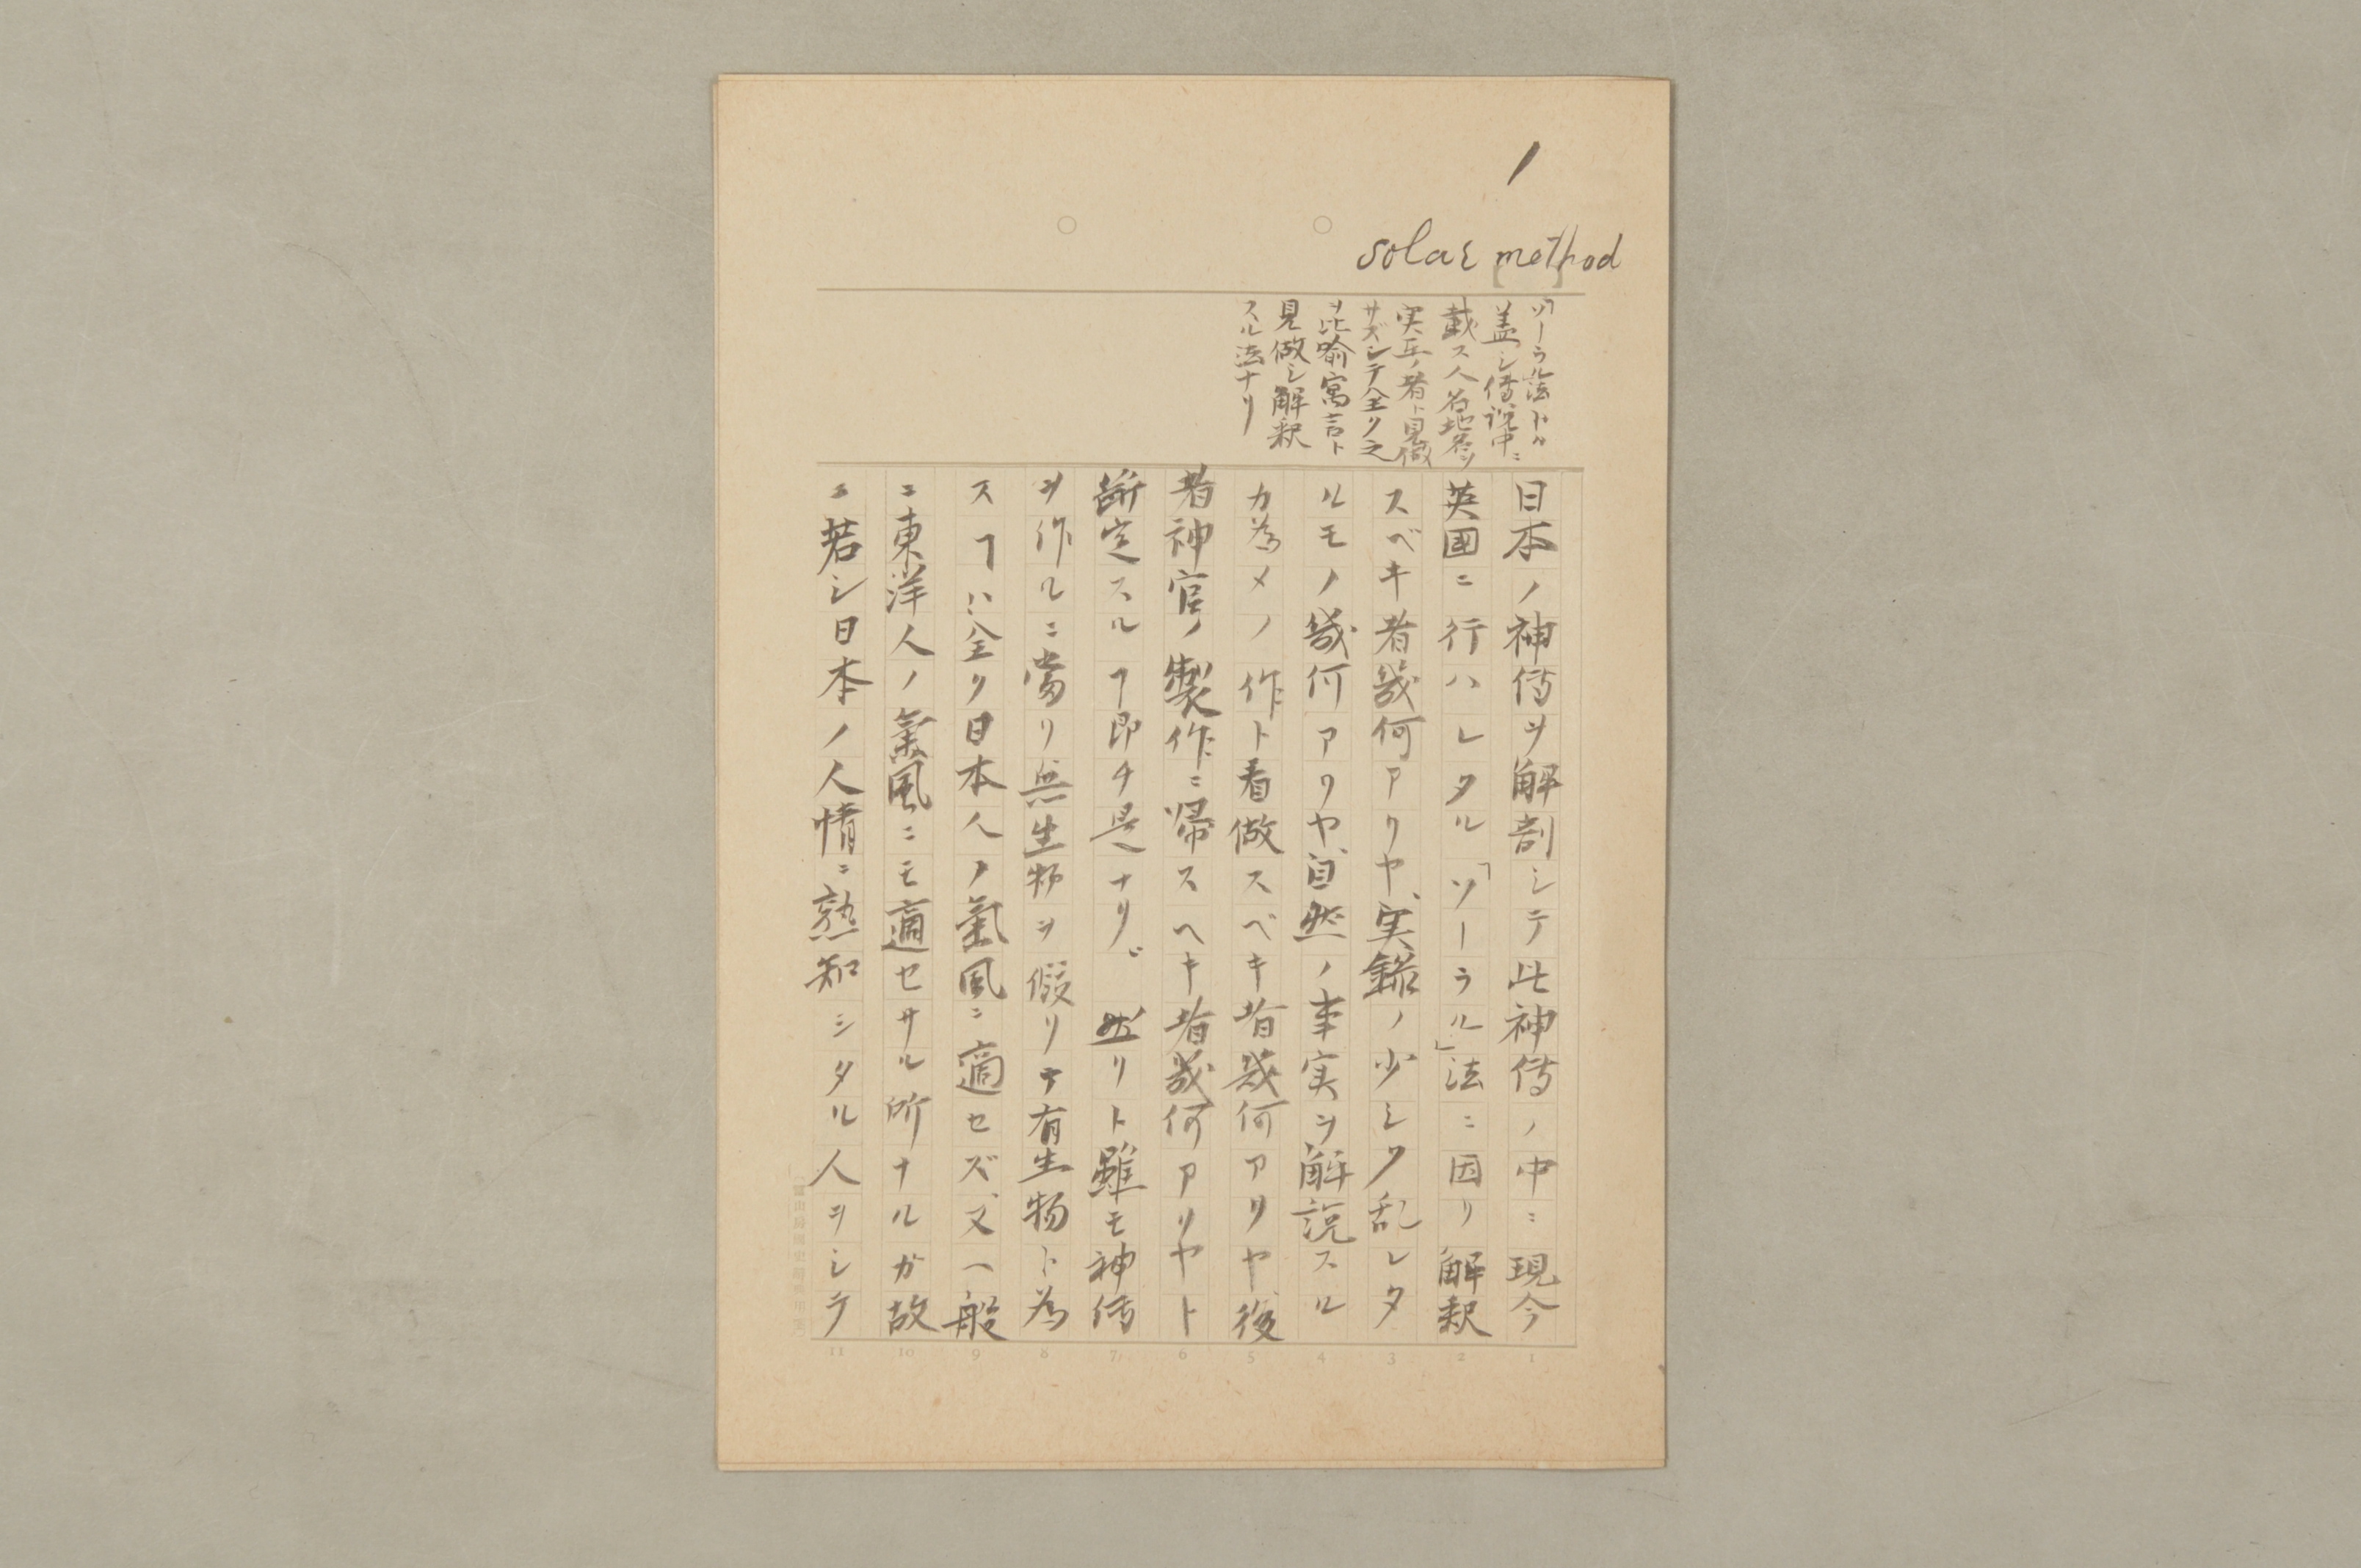 1
solar method
「ソーラル法トハ
盖シ傳説中ニ
載ス人名地名ヲ
実在ノ者ト見做
サズシテ全ク之
ヲ比喩寓言ト
見做シ解釈
スル法ナリ
日本ノ神傳ヲ解剖シテ此神傳ノ中ニ現今
英國ニ行ハレタル「ソーラル」法ニ因リ解釈
スベキ者幾何アリヤ、実録ノ少シク乱レタ
ルモノ幾何アリヤ、自然ノ事実ヲ解説スル
カ為メノ作ト看做スベキ者幾何アリヤ後
者神官ノ製作ニ帰スヘキ者幾何アリヤト
断定スルヿ即チ是ナリ゛然リト雖モ神傳
ヲ作ルニ當リ無生物ヲ假リテ有生物ト為
スヿハ全ク日本人ノ氣風ニ適セズ、又一般
ニ東洋人ノ氣風ニモ適セサル所ナルガ故
ニ若シ日本ノ人情ニ熟知シタル人ヲシテ
1
2
3
4
5
6
7
8
9
10
11